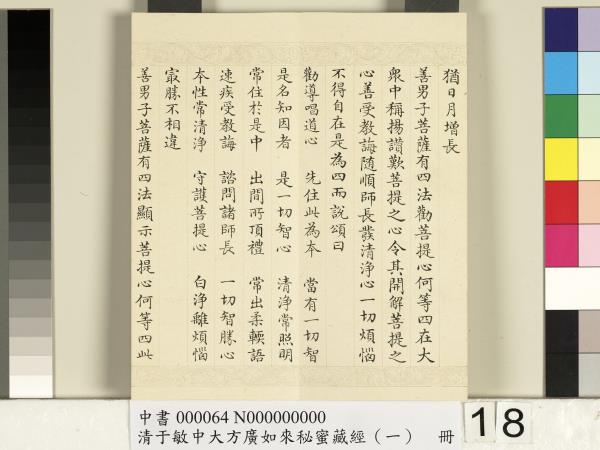 猶日月增長
善男子菩薩有四法勸菩提心何等四在大
衆中稱揚讚歎菩提之心令其開解菩提之
心善受教誨隨順師長發清淨心一切煩惱
不得自在是為四而說頌曰
勸導唱道心 先住此為本 當有一切智
是名知因者 是一切智心 清淨常照明
常住於是中 出間所頂禮 常出柔輭語
速疾受教誨 諮問諸師長 一切智勝心
本性常清淨 守護菩提心 白淨離煩惱
冣勝不相違
善男子菩薩有四法顯示菩提心何等四此
中書 000064 N000000000
清于敏中大方廣如來秘蜜藏經（一） 冊
18